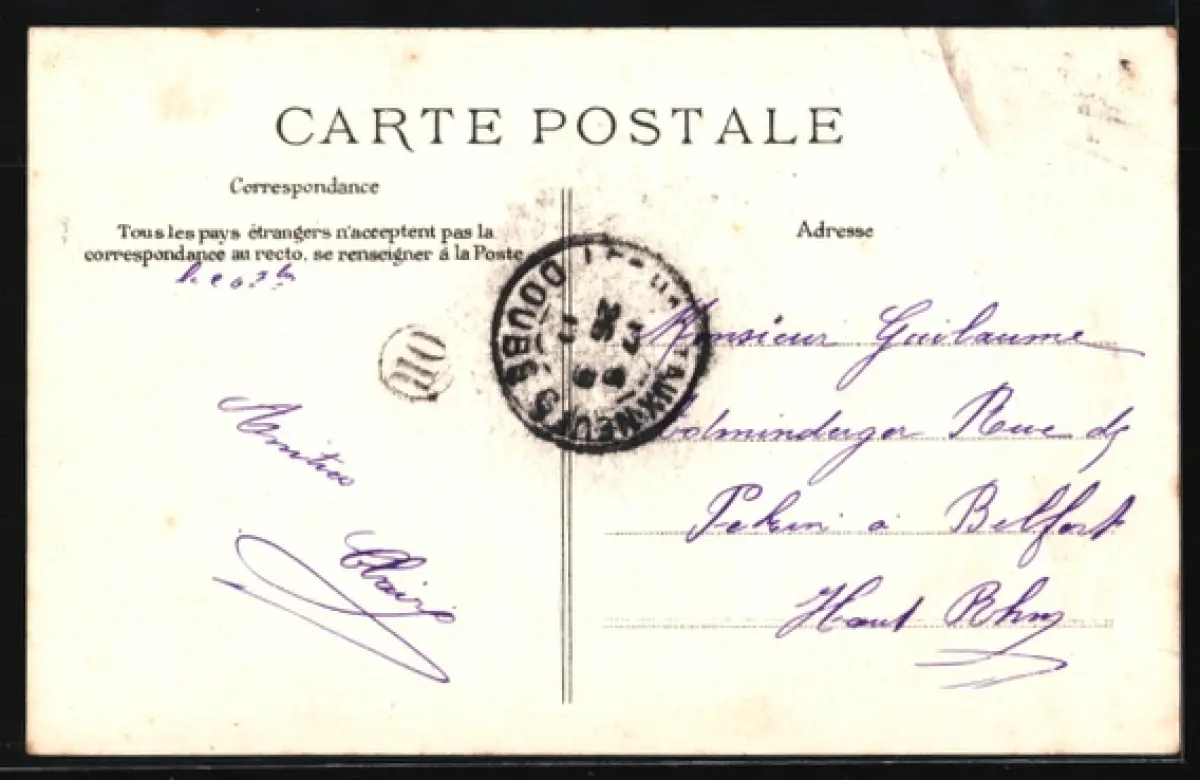 CARTE POSTALE
Correspondance
Tous les pays étrangers n'acceptent pas la
correspondance au recto, se renseigner à la Poste
Claire
Adresse
Monsieur Guilaume
Rue de
Pekin a Belfort
Haut Rhin
DOUBS
26
OR